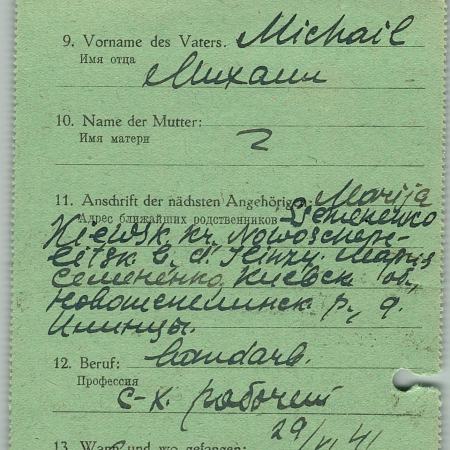 9. Vorname des Vaters. Michail
Имя отца
Михаил
10. Name der Mutter:
Имя матери
11. Anschrift der nächsten Angehörigen: Marija
Адрес ближайших родственников Semenenko
Kiewsk. kr. Nowoschepe-
litsk b. d. Ilinzy. Мария
Семененко, Киевск об,
р., д.
Илинцы.
12. Beruf: Landarb.
Профессия
с-х. рабочий
13. Wann und wo gefangen: 29/VI 41